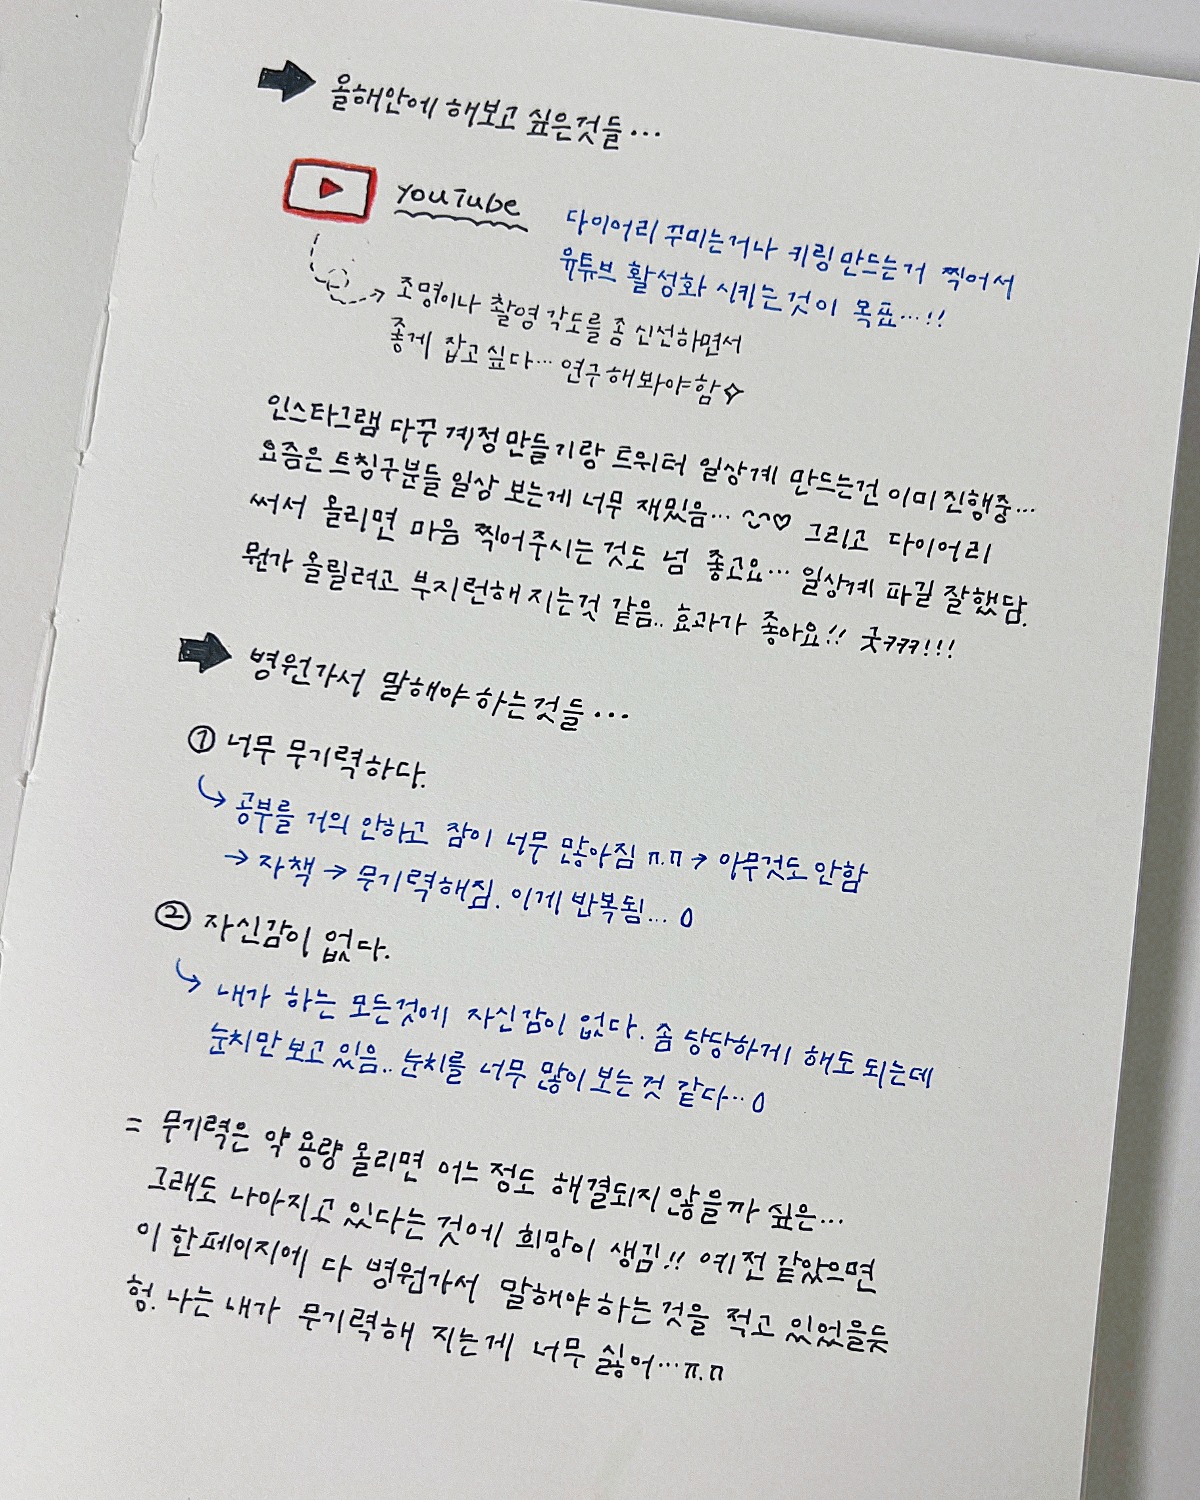 올해안에 해보고 싶은것들...
YouTube
다이어리 꾸미는거나 키링만드는거 찍어서
유튜브 활성화 시키는것이 목표...!!
조명이나 촬영 각도를 좀 신선하면서
좋게 잡고싶다... 연구해봐야함
인스타그램 다꾸 계정만들기랑 트위터 일상계 만드는건 이미 진행중...
요즘은 트친구분들 일상 보는게 너무 재밌음... ^^♡ 그리고 다이어리
써서 올리면 마음 찍어주시는 것도 넘 좋고요... 일상계 파길 잘했담.
뭔가 올릴려고 부지런해 지는것 같음.. 효과가 좋아요!! 굿ㅋㅋㅋ!!!
병원가서 말해야하는것들...
① 너무 무기력하다.
공부를 거의 안하고 잠이 너무 많아짐 ㅠ.ㅠ → 아무것도 안함
→ 자책 → 무기력해짐. 이게 반복됨...
② 자신감이 없다.
내가 하는 모든것에 자신감이 없다. 좀 당당하게 해도 되는데
눈치만 보고 있음.. 눈치를 너무 많이 보는것 같다...
= 무기력은 약 용량 올리면 어느 정도 해결되지 않을까 싶은...
그래도 나아지고 있다는 것에 희망이 생김!! 예전 같았으면
이 한페이지에 다 병원가서 말해야하는 것을 적고 있었을듯
험. 나는 내가 무기력해 지는게 너무 싫어...ㅠ.ㅠ